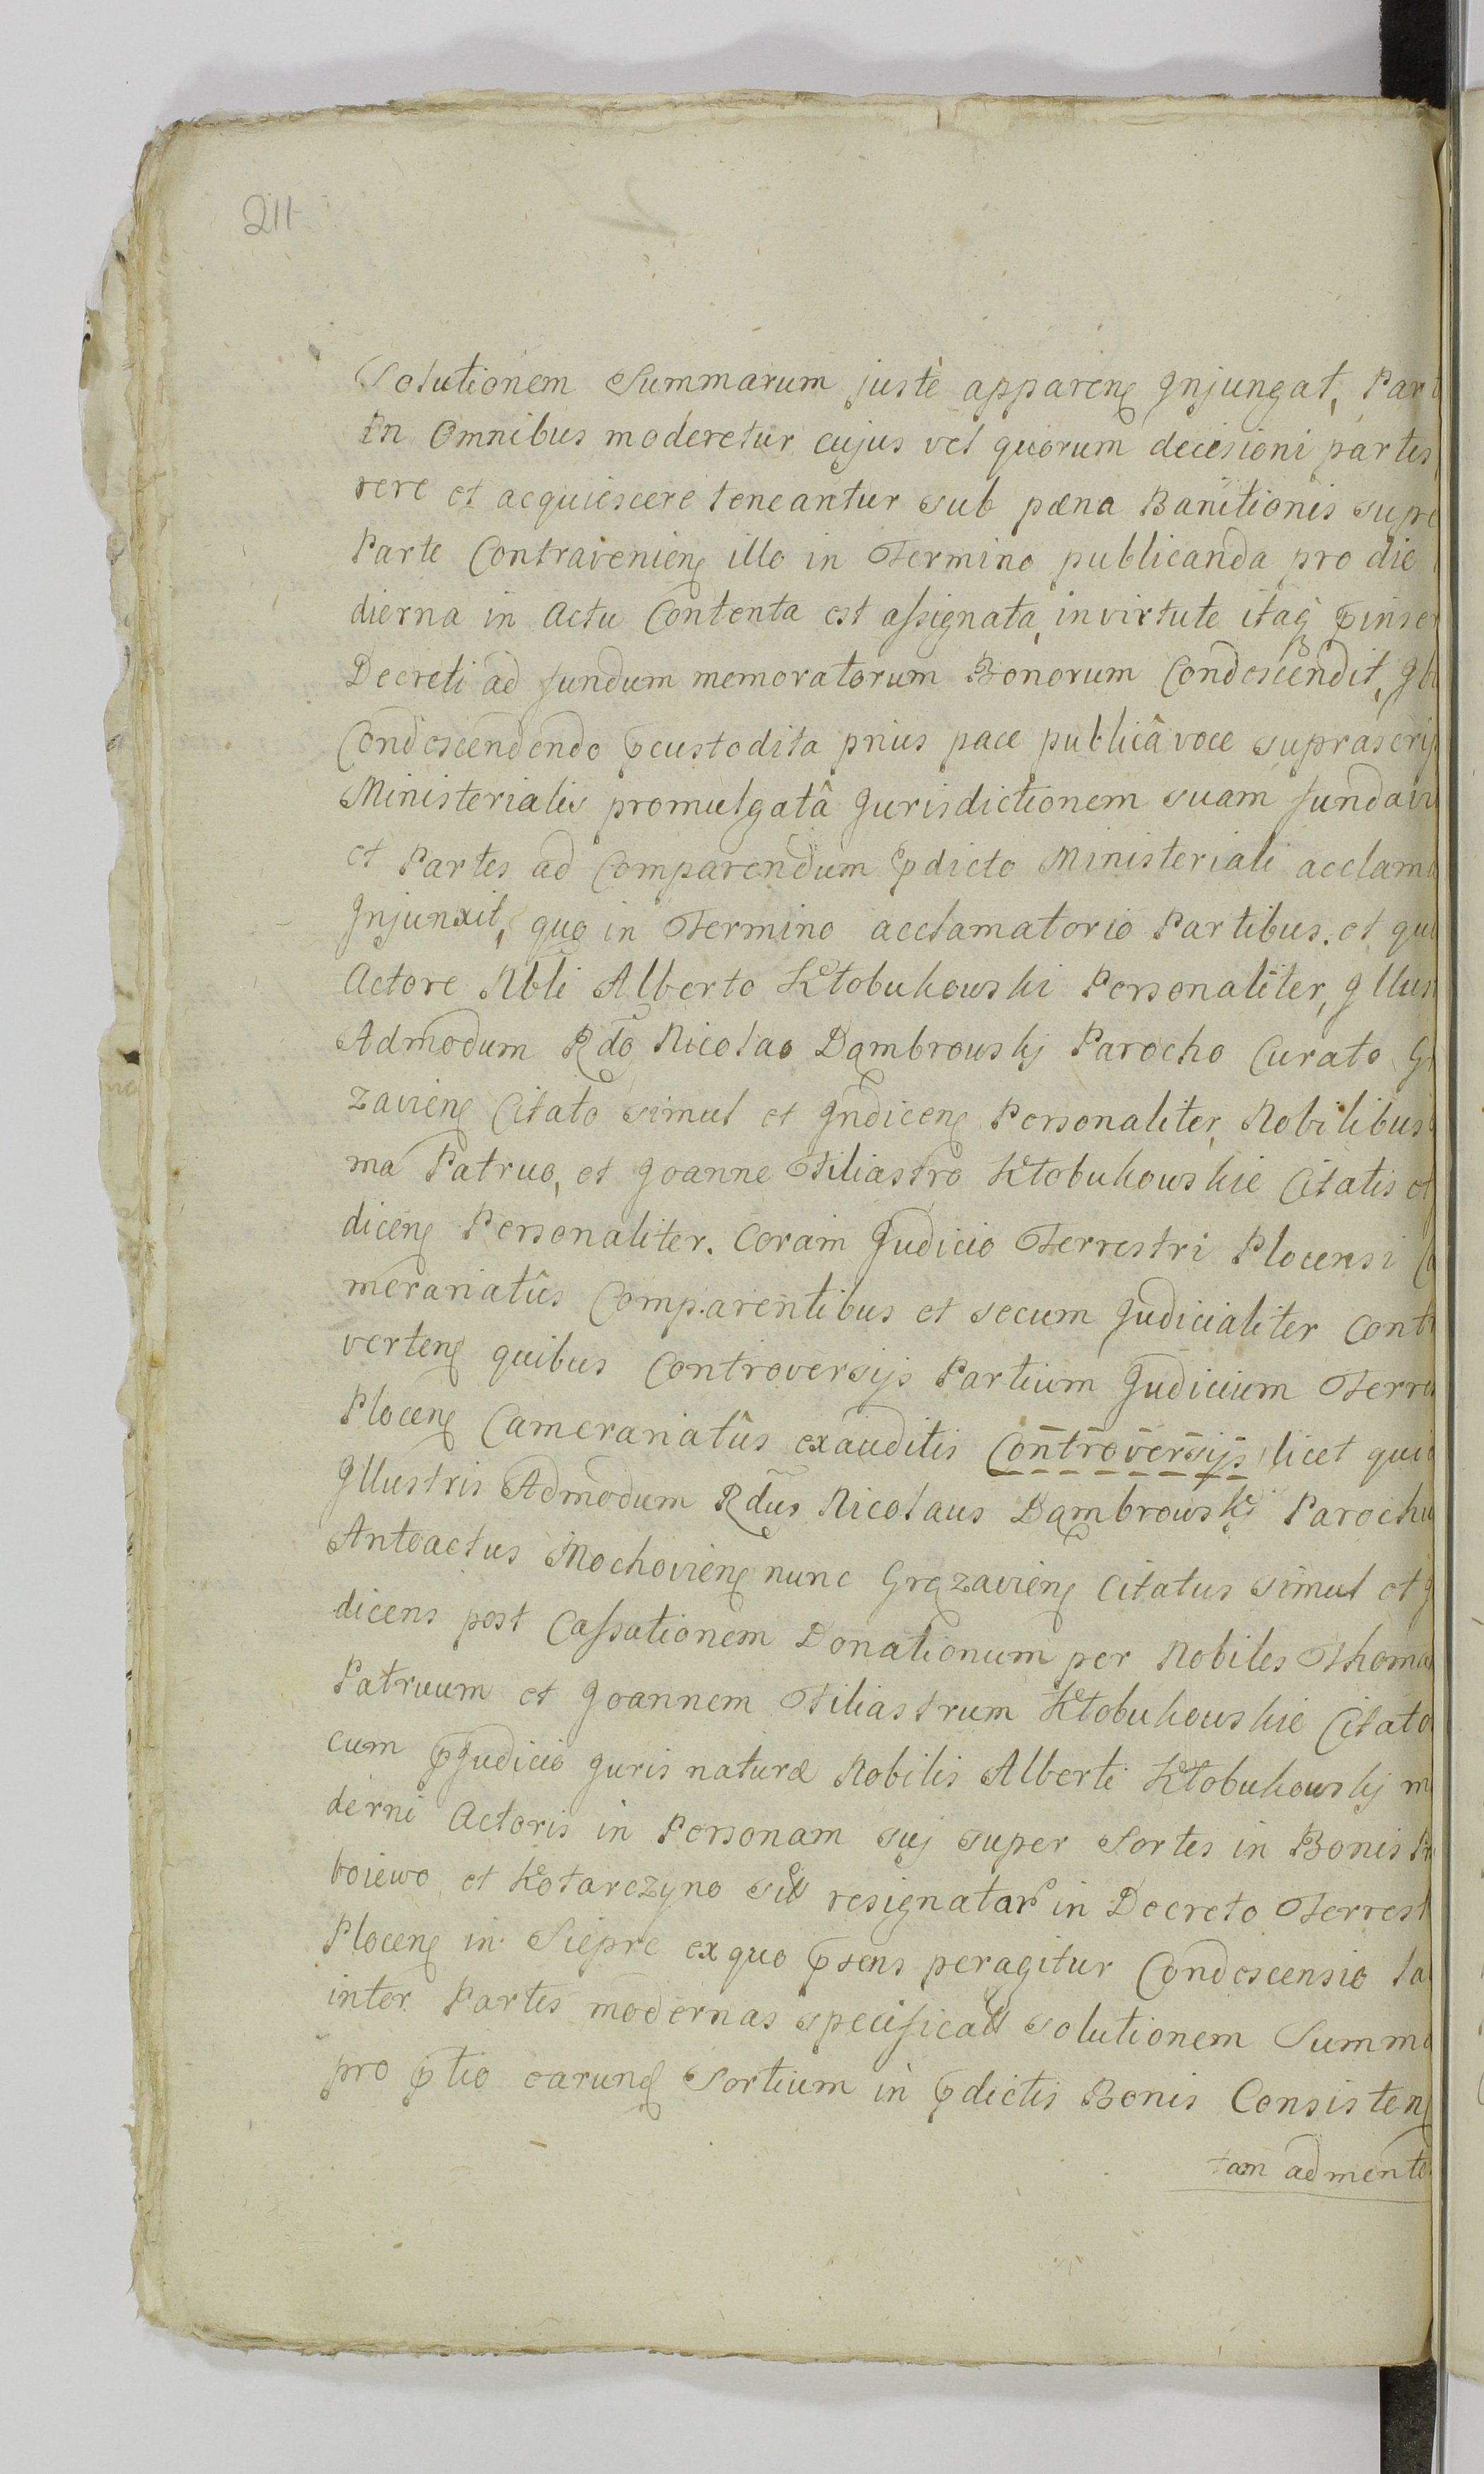 211
Solutionem Summarum justè apparenẽ Injungat, Par
In Omnibus moderetur cujus vel quorum decisioni partes
rere et acquiescere teneantur sub pæna Banitionis supe
Parte Contravenienẽ illo in Termino publicanda pro die
dierna in Actu Contenta est assignata, in virtute itaq̃ p̃inser
Decreti ad fundum memoratorum Bonorum Condescendit, Ib
Condescendendo p̃custodita prius pace publicâ voce suprascrip
Ministerialis promulgatâ Jurisdictionem suam fundavi
et Partes ad Comparendum p̃dicto Ministeriali acclama
Injunxit, quo in Termino acclamatorio Partibus. et qui
Actore Nbli Alberto Kłobukowski Personaliter, Illus
Admodum Rdo Nicolao Dąmbrowskj Parocho Curato G
zavienẽ Citato simul et Indicenẽ Personaliter, Nobilibus
ma Patruo, et Joanne Filiastro Kłobukowskie Citatis et
dicenẽ Personaliter. Coram Judicio Terrestri Plocensi C
merariatûs Comparentibus et secum Judicialiter Cont
vertenẽ quibus Controversijs Partium Judicium Terre
Plocenẽ Camerariatûs exauditis Controversijs licet qui
Illustris Admodum Rdus Nicolaus Dąmbrowski Parochu
Anteactus Mochovienẽ nunc Gręzavienẽ Citatus simul et I
dicens post Cassationem Donationum per Nobiles Thoma
Patruum et Joannem Filiastrum Kłobukowskie Citato
cum p̃judicio Juris naturæ Nobilis Alberti Kłobukowskj m
derni Actoris in Personam suj super Sortes in Bonis
boiewo et Kotarczyno resignatar in Decreto Terrest
Plocenẽ in Siepre ex quo p̃sens peragitur Condescensio la
inter Partes modernas specificað solutionem Summa
pro p̃tio earunð Sortium in p̃dictis Bonis Consistenẽ
tam ad mente